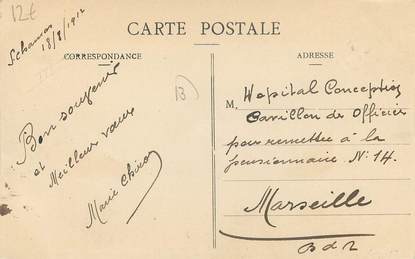 12€
18/8/1912
CARTE POSTALE
CORRESPONDANCE
ADRESSE
Bon souvenir
et
Meilleur vœux
Marie
M. Hopital Conception
Pavillon des Officier
pour remettre à la
pensionnaire N° 14.
Marseille
B d R